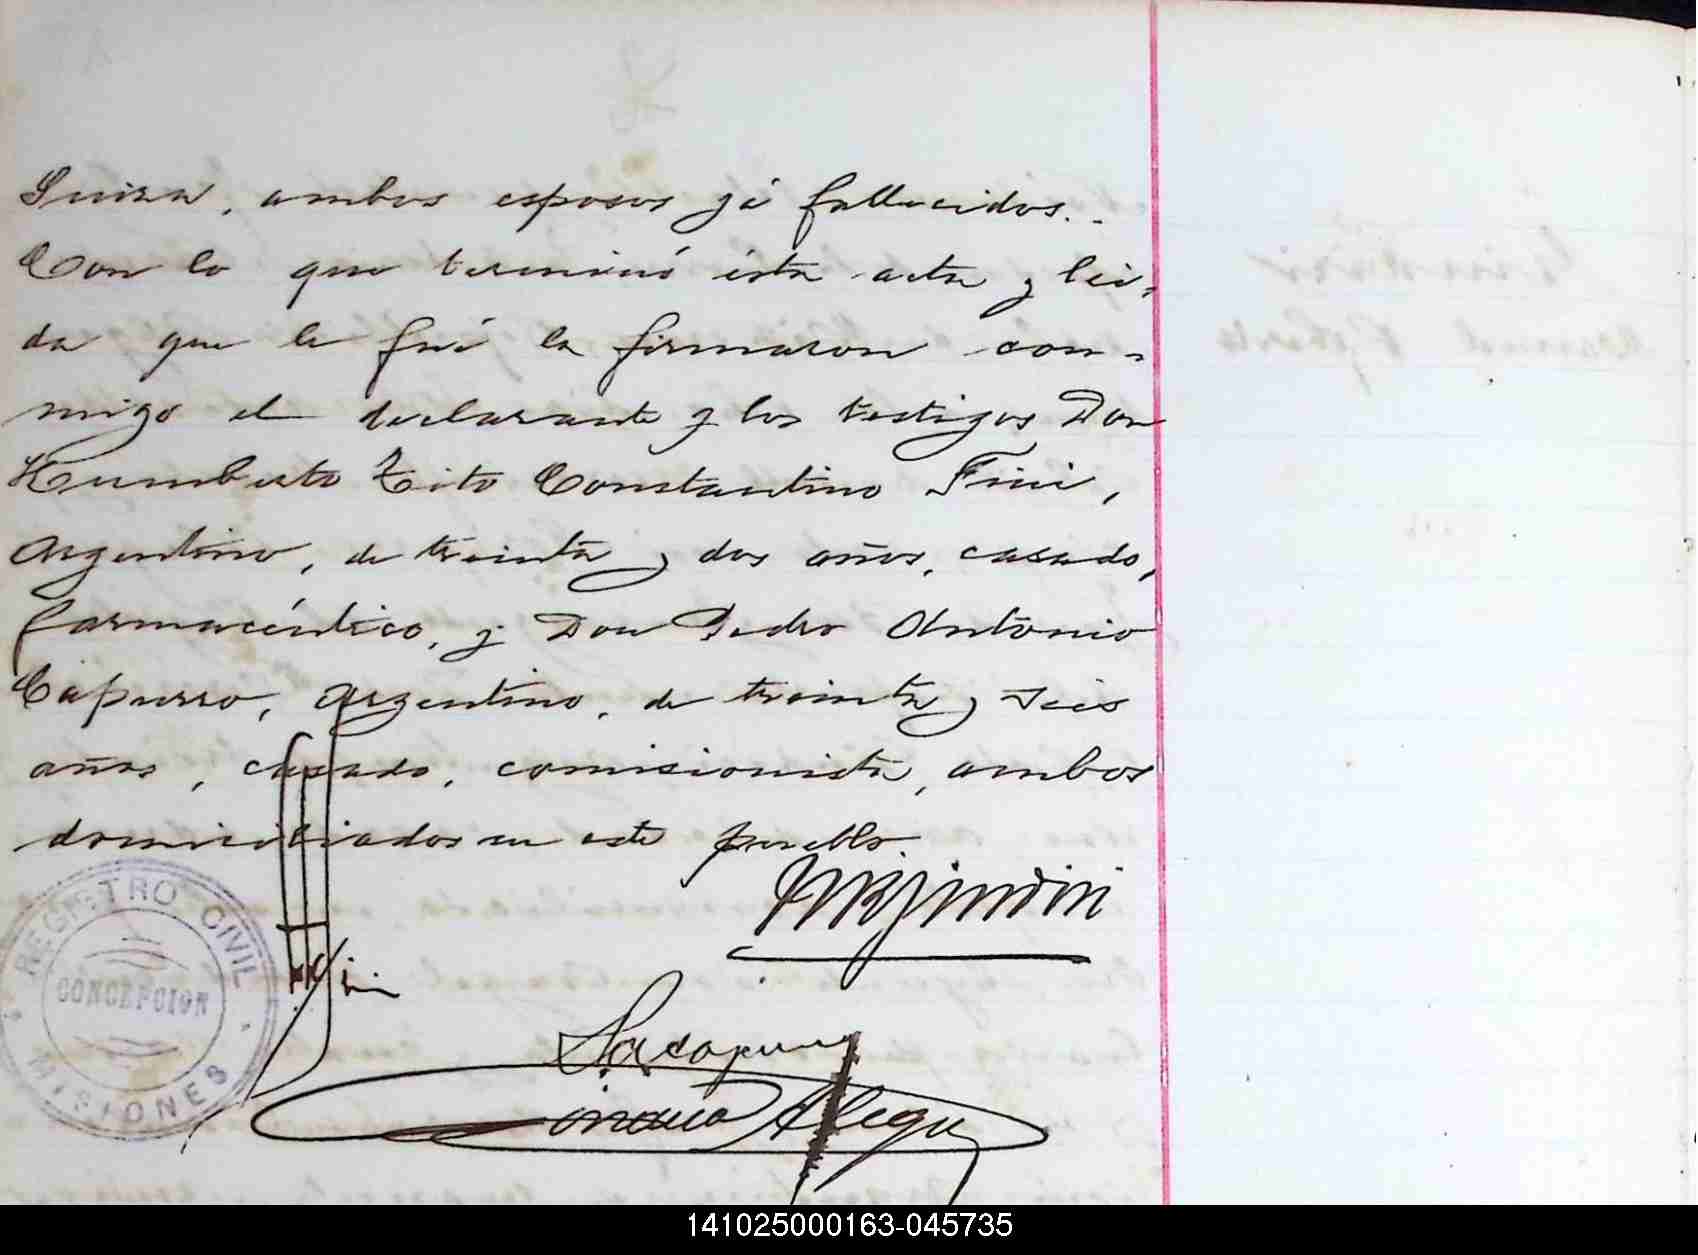 Suiza, ambos esposos yá fallecidos.-
Con lo que terminó ésta acta y lei-
da que le fué la firmaron con-
migo el declarante y los testigos Don
Humberto Tito Constantino Fini,
Argentino, de treinta y dos años, casado,
farmacéutico, y Don Pedro Antonio
Capurro, Argentino, de treinta y seis
años, casado, comisionista, ambos
domiciliados en este pueblo.
REGISTRO CIVIL
CONCEPCION
MISIONES
Alegre
141025000163-045735